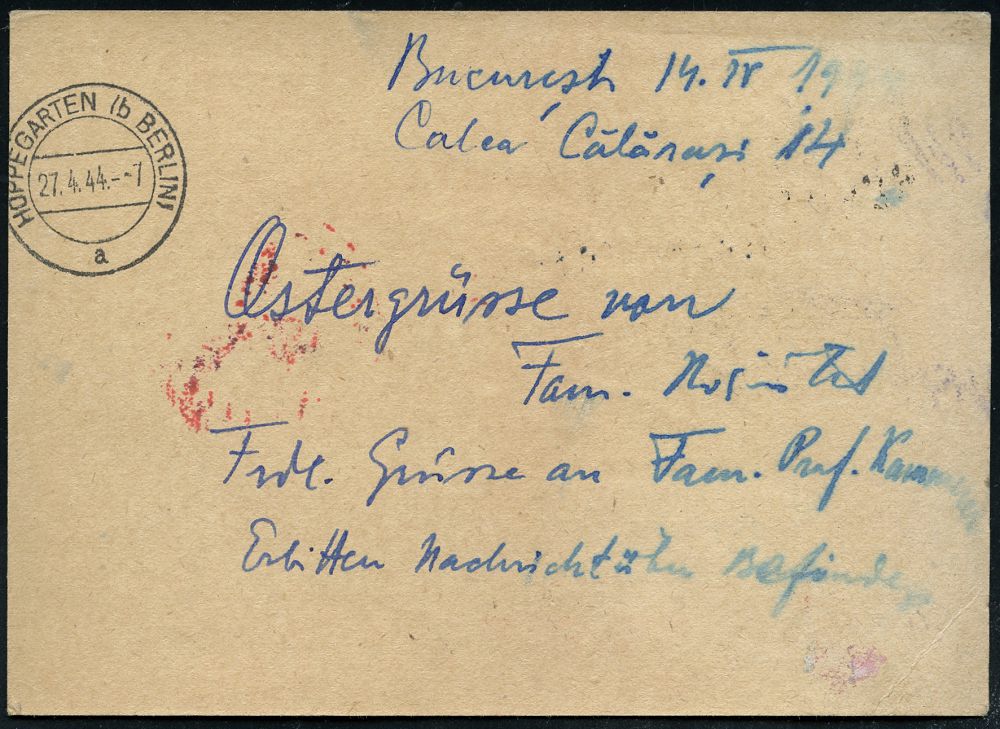 București 14. IV 19
Calea Călărași 14
HOPPEGARTEN (b BERLIN)
27.4.44.--7
a
Ostergrüsse von
Fam.
Frdl. Grüsse an Fam. Prof.
Erbitten Nachricht über Befinden